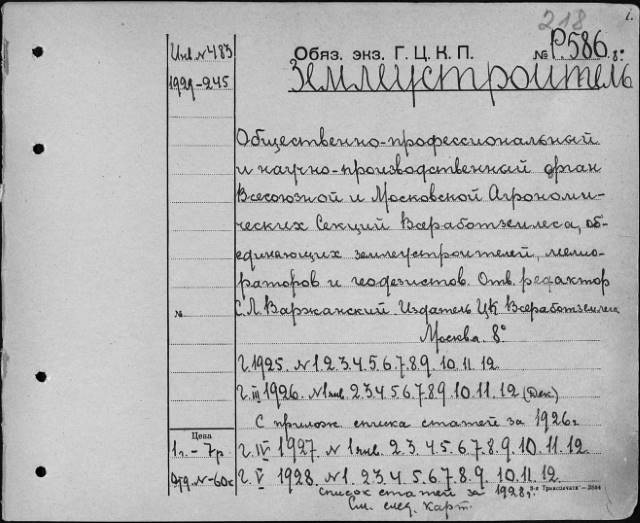 218 1.
Инв. № 483
Обяз. экз. Г.Ц.К.П. № Р.586. 8°
1929-245
Землеустроитель
Общественно-профессиональный
и научно-производственный орган
Всесоюзной и Московской Агрономи-
ческих Секций Всеработземлеса, об-
единяющих землеустроителей, мелио-
раторов и геодезистов. Отв. редактор
№
С.Л. Варжанский. Издатель ЦК Всеработземлеса
Москва. 8°
г. 1925. № 1. 2. 3. 4. 5. 6. 7. 8. 9. 10. 11. 12
г. III 1926. № 1 янв. 2. 3. 4. 5. 6. 7. 8. 9. 10. 11. 12 (Дек)
С прилож. списка статей за 1926 г
Цена
1 г. - 7 р
г. IV 1927. № 1 янв. 2. 3. 4. 5. 6. 7. 8. 9. 10. 11. 12
Отд. № - 60 к
г. V 1928. № 1. 2. 3. 4. 5. 6. 7. 8. 9. 10. 11. 12.
список статей за 1928 г.
См. след. карт.